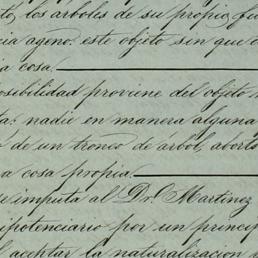 to, los árboles de su propio fu
cia ageno: este objeto sin que
a cosa.
osibilidad proviene del objeto
ta: nadie en manera alguna
de un tronco de árbol, abort
a cosa propia.
se imputa al Dr. Martinez
ipotenciario por un princip
l aceptar la naturalizacion